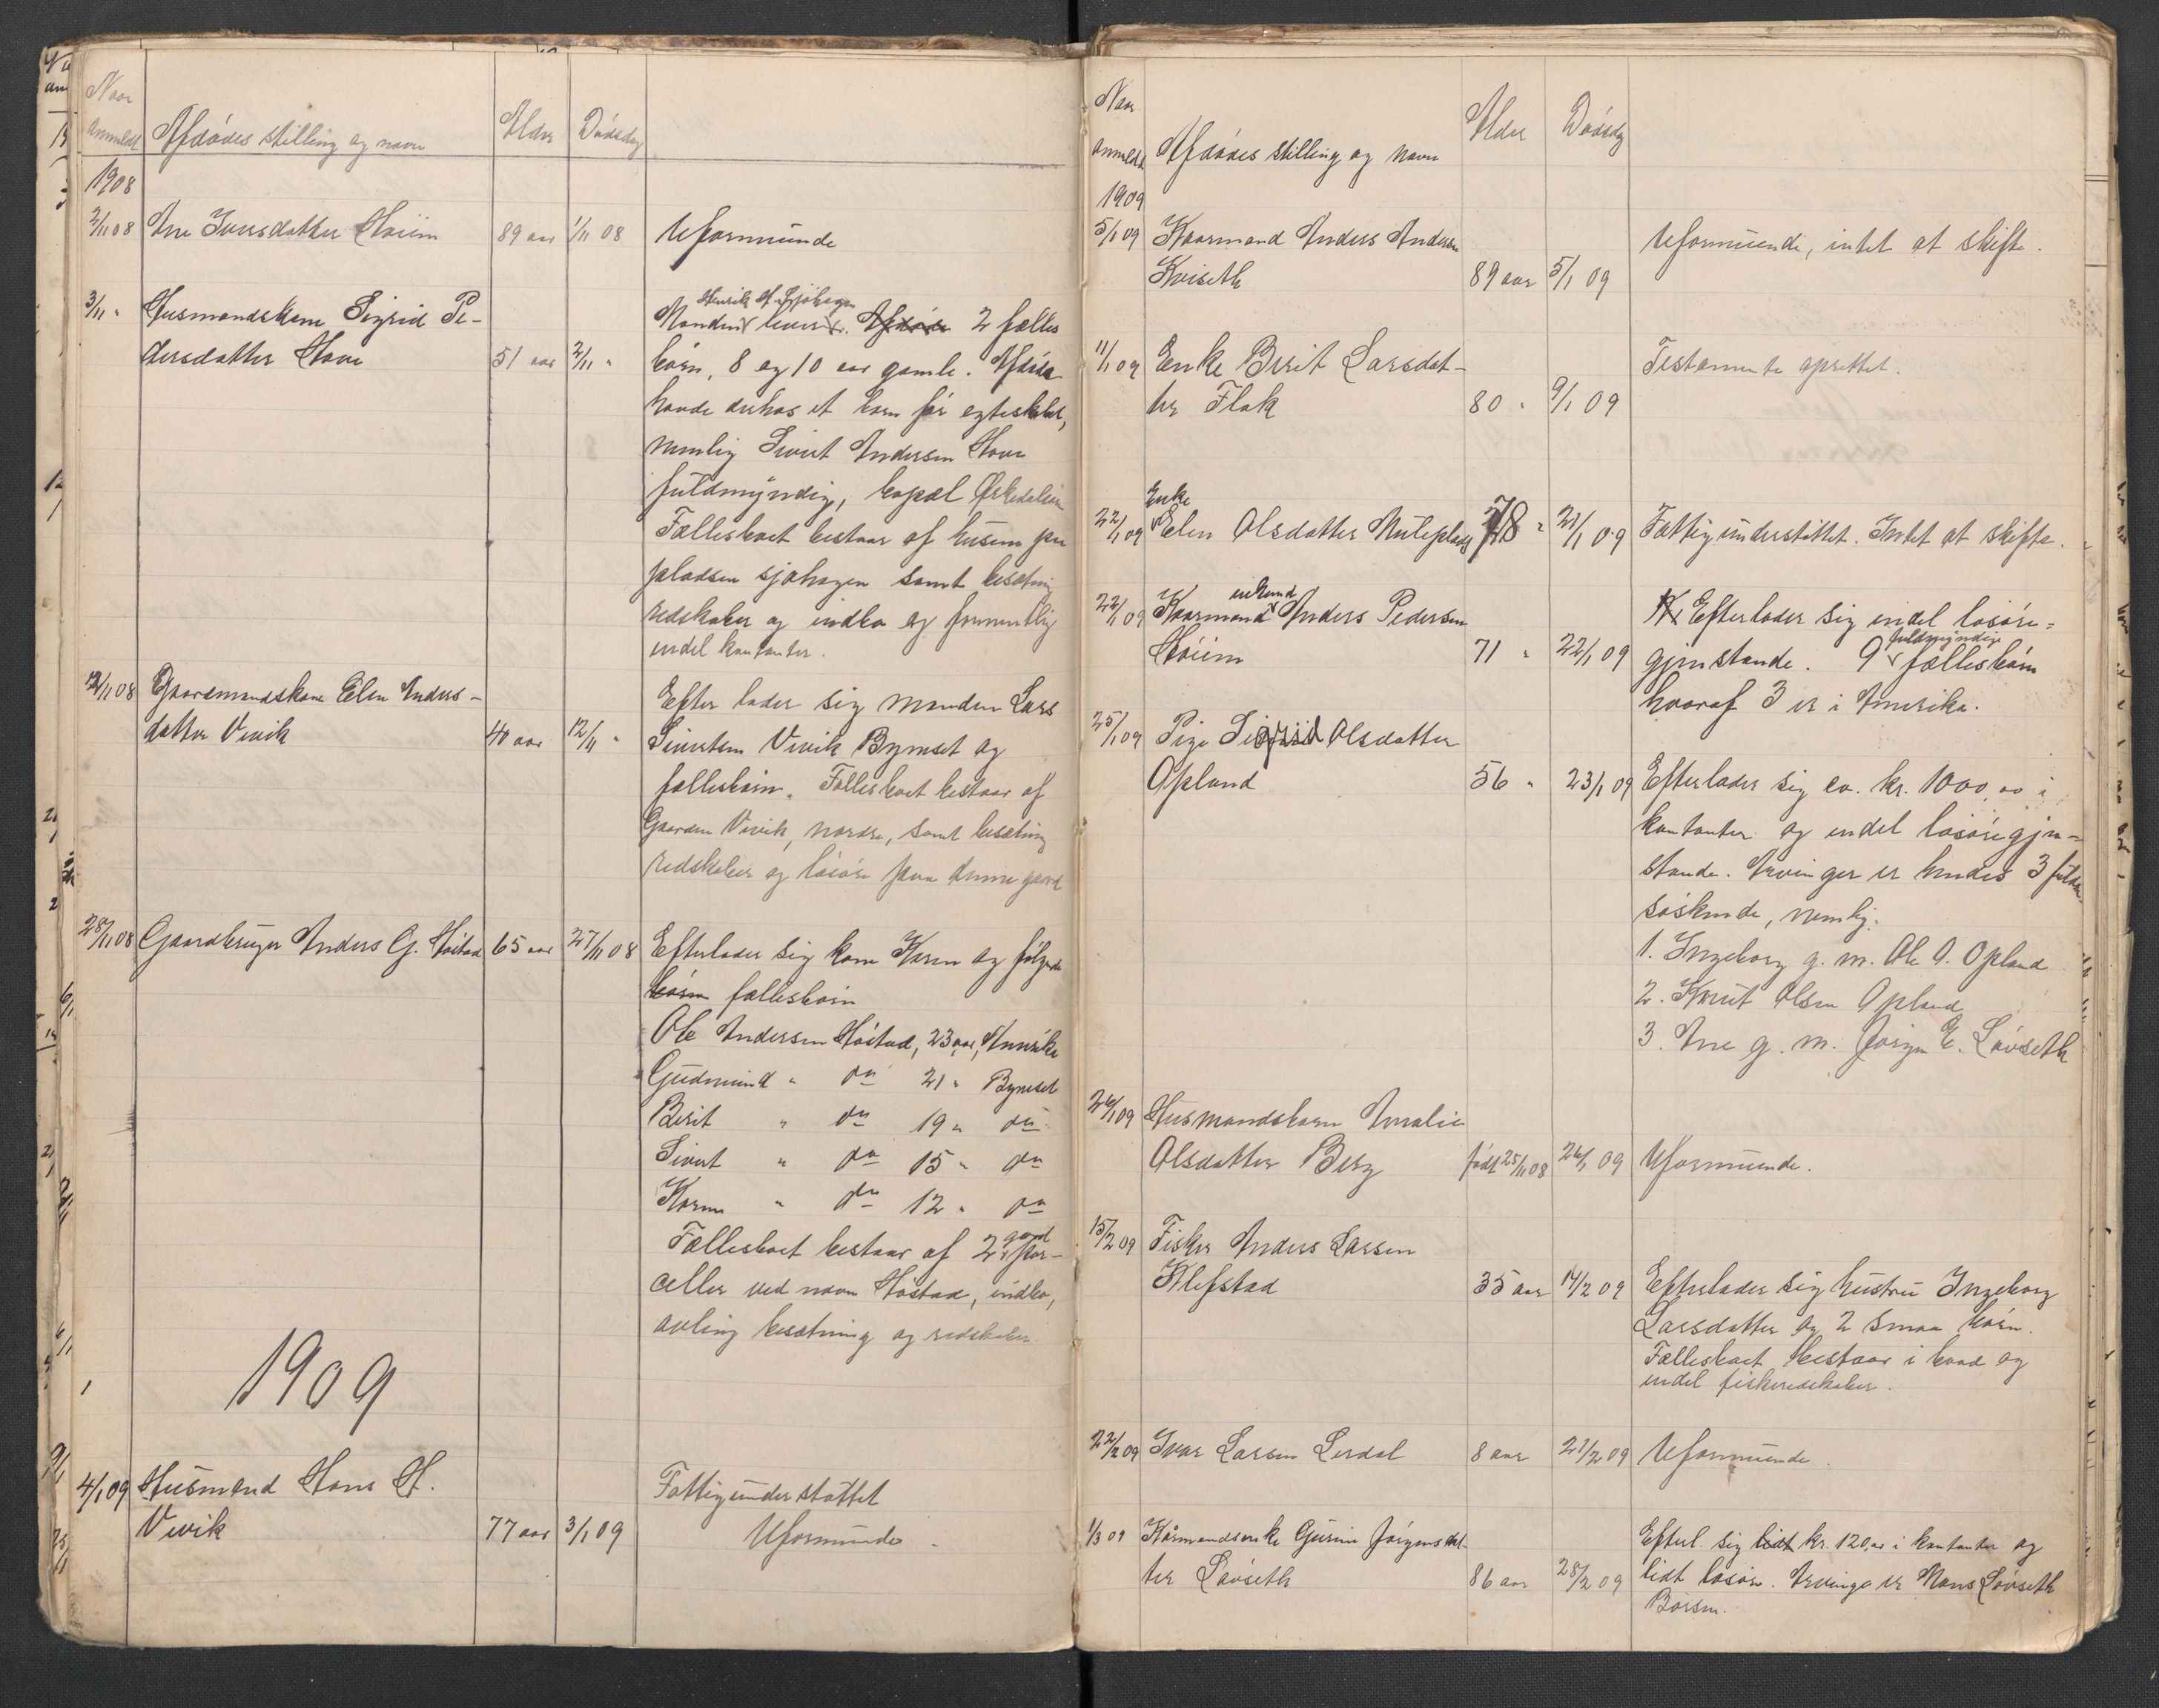 Naar
anmeldt Afdødes stilling og navn Alder Dødsdag
1908
2/11 08 Ane Iversdatter Høiem 89 aar 1/11 08 Uformuende
3/11 " Husmandskone Sigrid Pe-
dersdatter Hove 51 aar 2/11 "
Henrik H. Sjøhagen
Manden lever. Afdøde 2 fælles
børn, 8 og 10 aar gamle. Afdøde
havde derhos et barn før egteskabet,
nemlig Sivert Andersen Hove
fuldmyndig, bopæl Orkedalen
Fællesboet bestaar af husene paa
pladsen sjøhagen samt besætning
redskaber og indbo og formentlig
endel kontanter.
12/11 08 Gaardmandskone Elen Anders-
datter Vevik 40 aar 12/11 "
Efterlader sig manden Lars
Sivertsen Vevik Bynesset og
fællesbørn. Fællesboet bestaar af
Gaarden Vevik, nordre, samt besætning
redskaber og løsøre paa denne gaard
28/11 08 Gaardbruger Anders G. Høstad 65 aar 27/11 08 Efterlader sig kone Karen og følgende
børn fællesbørn
Ole Andersen Høstad, 23 aar, Amerika
Gudmund " do 21 " Byneset
Berit " do 19 " do
Sivert " do 15 " do
Karen " do 12 " do
Fællesboet bestaar af 2 gaardpar-
celler ved navn Høstad, indbo,
avling besætning og redskaber.
1909
4/1 09 Husmand Hans H.
Vevik 77 aar 3/1 09
Fattigunderstøttet
Uformuende.
Naar
anmeldt Afdødes stilling og navn Alder Dødsdag
1909
5/1 09 Kaarmand Anders Andersen
Kviseth 89 aar 5/1 09
Uformuende, intet at skifte.
11/1 09 Enke Berit Larsdat-
ter Flak 80 " 9/1 09
Testamente oprettet.
Enke
22/1 09 Elen Olsdatter Muleplads 78 " 21/1 09 Fattigunderstøttet. Intet at skifte.
enkemand
22/1 09 Kaarmand Anders Pedersen
Høiem 71 " 22/1 09
Efterlader sig endel løsøre-
gjenstande. 9 fuldmyndige fællesbørn
hvoraf 3 er i Amerika.
25/1 09 Pige Sigrid Olsdatter
Opland 56 " 23/1 09 Efterlader sig ca. kr. 1000,00 i
kontanter og endel løsøregjen-
stande. Arvinger er hendes 3
søskende, nemlig:
1. Ingeborg g. m. Ole O. Opland
2. Knut Olsen Opland
3. Ane g. m. Jørgen E. Løvseth
26/1 09 Husmandsbarn Amalie
Olsdatter Berg født 25/11 08 26/1 09 Uformuende.
15/2 09 Fisker Anders Larsen
Klefstad 35 aar 14/2 09 Efterlader sig hustru Ingeborg
Larsdatter og 2 smaa børn.
Fællesboet bestaar i baad og
endel fiskeredskaber.
22/2 09 Ivar Larsen Lerdal 8 aar 21/2 09 Uformuende.
1/3 09 Kårmandsenke Gurine Jørgensdat-
ter Løvseth 86 aar 28/2 09
Efterl. sig lidt kr. 120,00 i kontanter og
lidt løsøre. Arvinge er Hans Løvseth
Børsen.